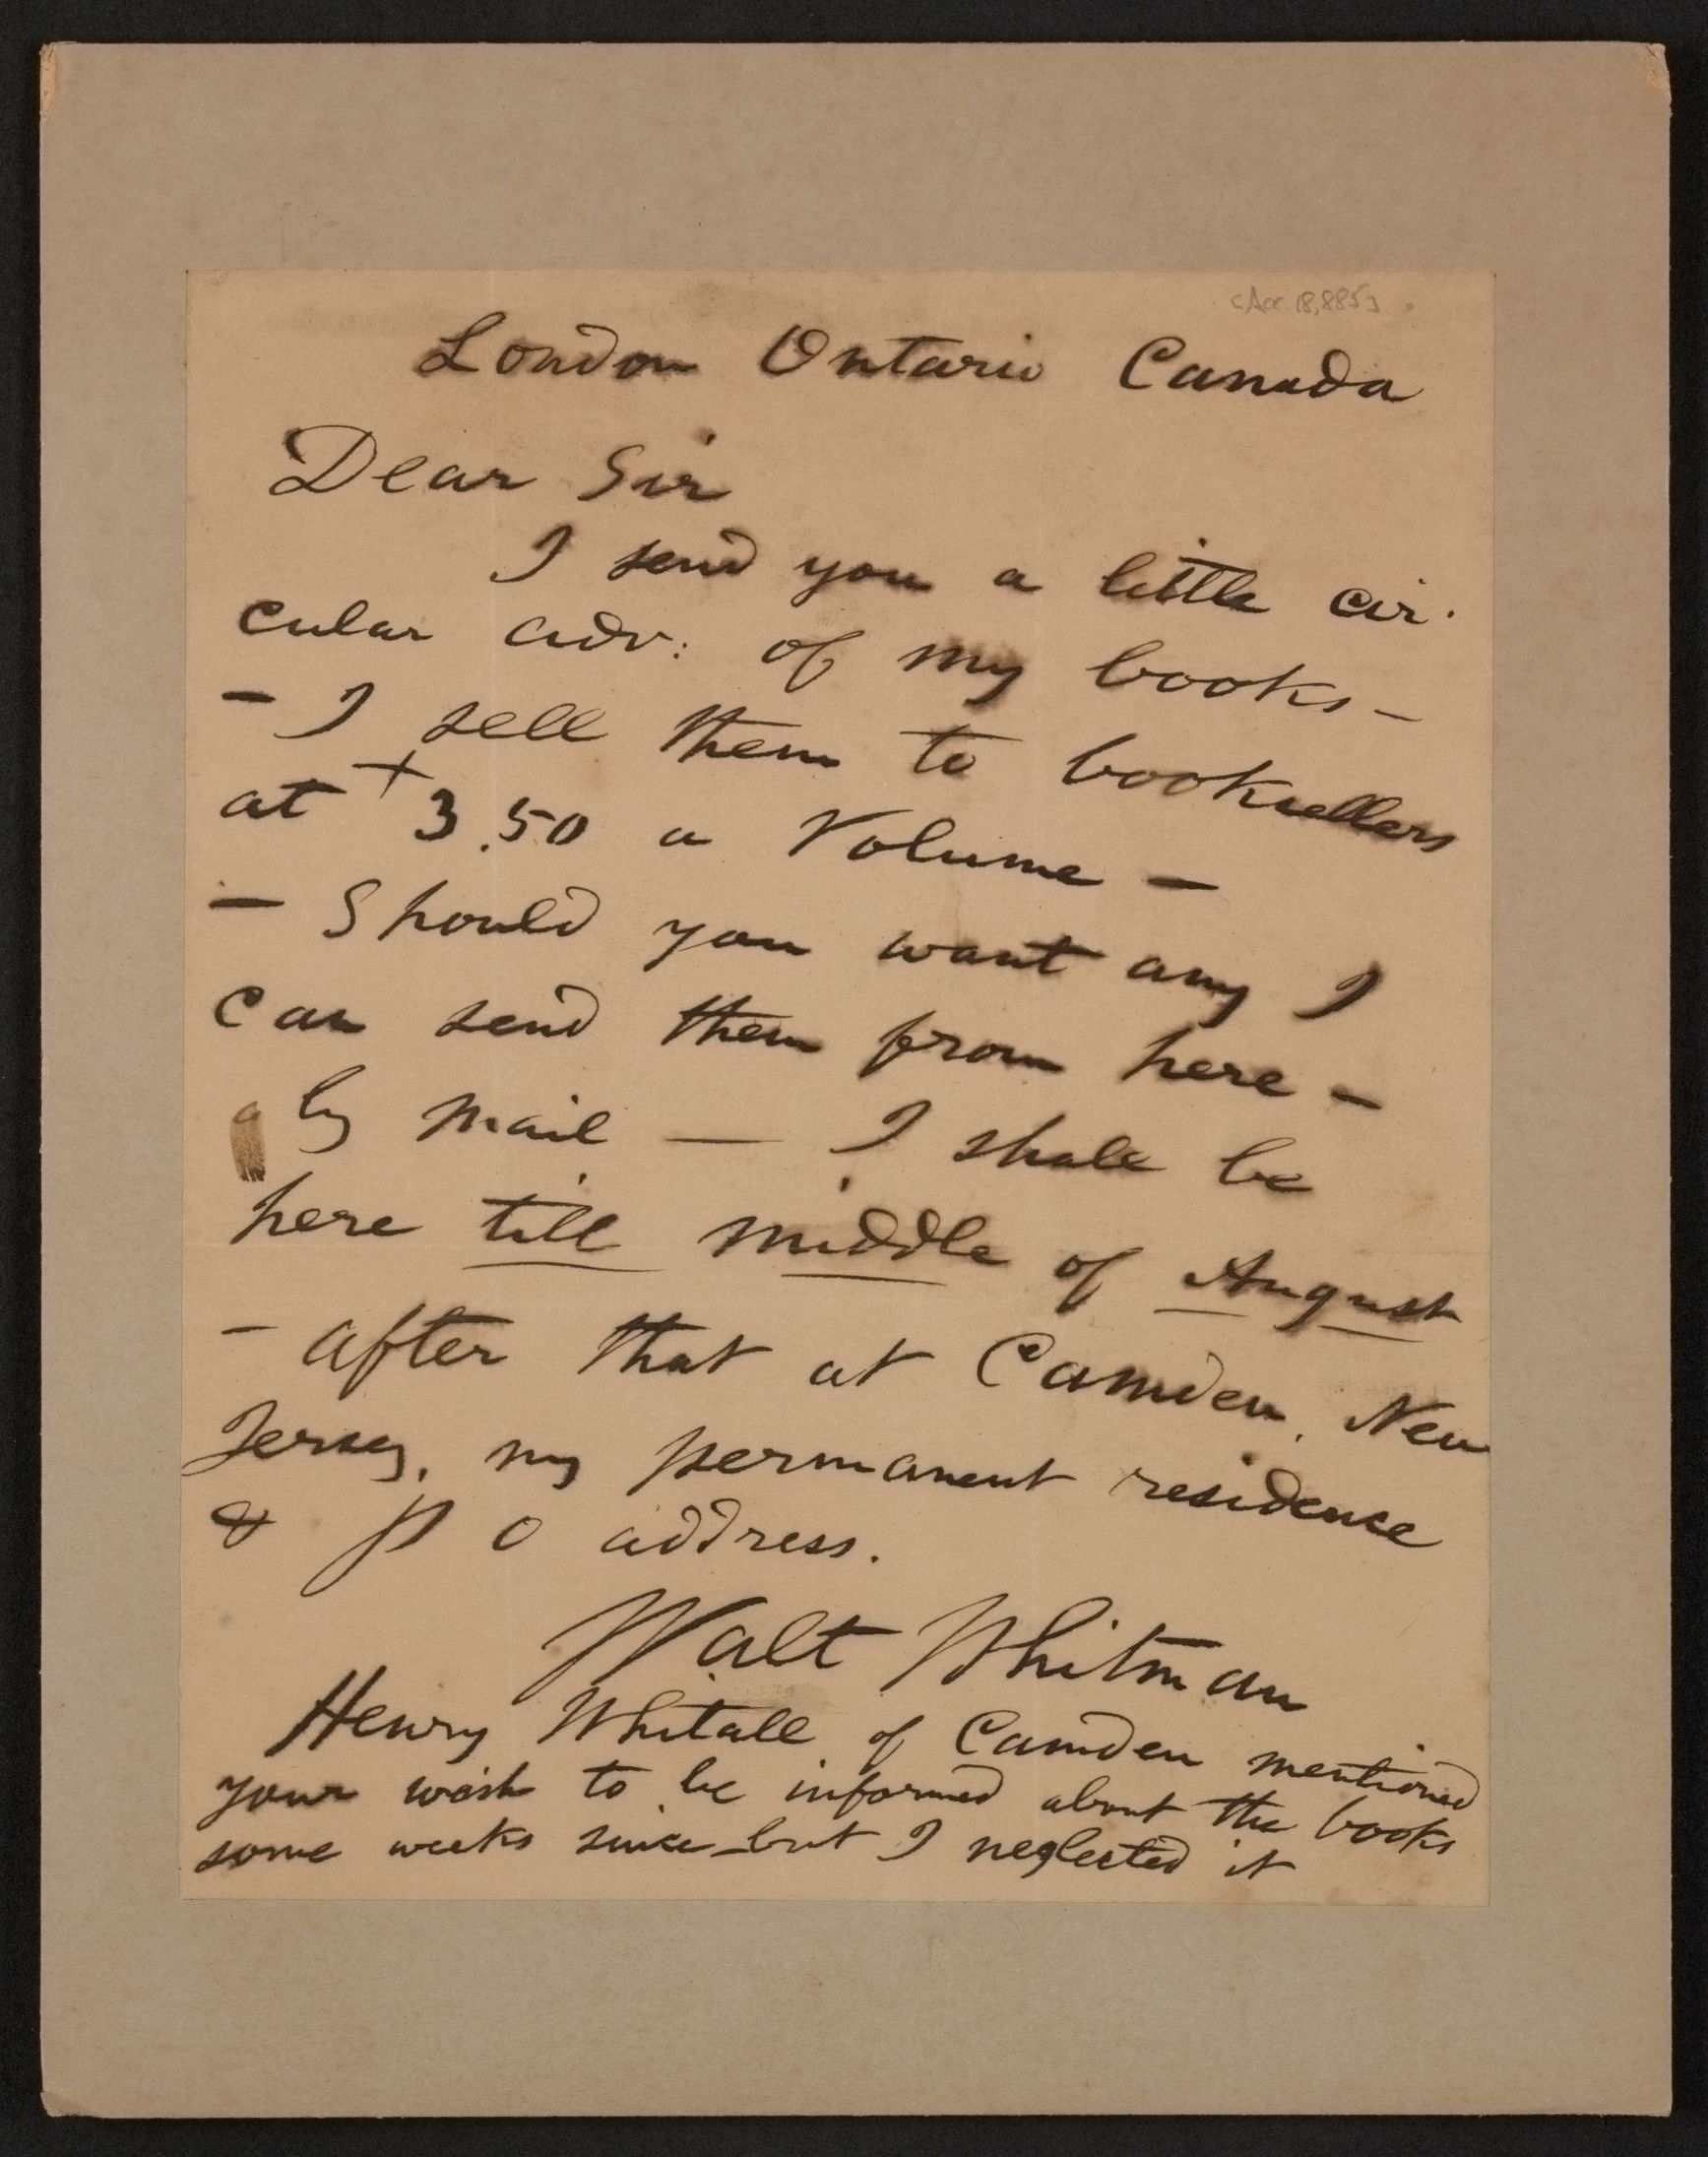 [Acc. 18,885]
London Ontario Canada
Dear Sir
I send you a little cir-
cular adv: of my books –
– I sell them to booksellers
at +3.50 a Volume –
– Should you want any I
can send them from here –
by mail — I shall be
here till middle of August
– after that at Camden, New
Jersey, my permanent residence
& p o address.
Walt Whitman
Henry Whitall of Camden mentioned
your wish to be informed about the books
some weeks since – but I neglected it